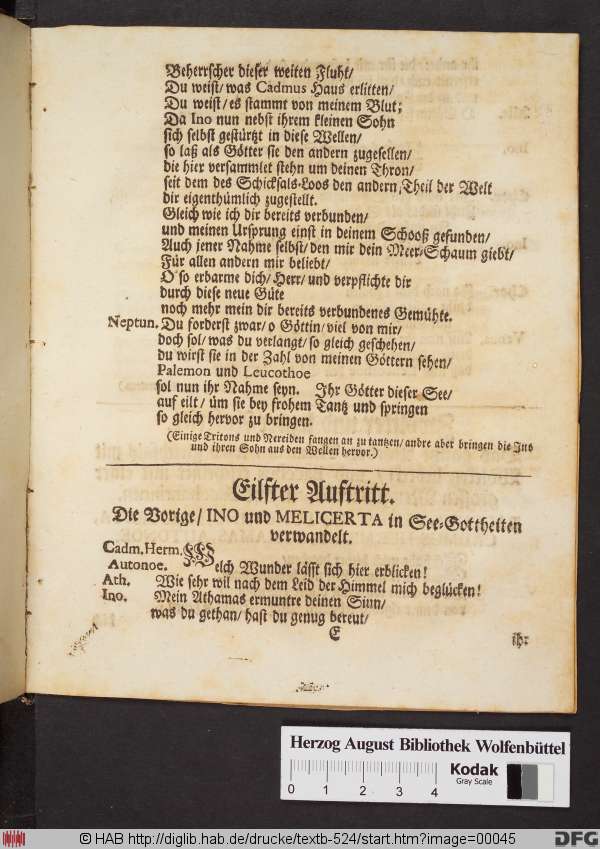 Beherrscher dieser weiten Fluht/
Du weist/ was Cadmus Haus erlitten/
Du weist/ es stammt von meinem Blut;
Da Ino nun nebst ihrem kleinen Sohn
sich selbst gestürtzt in diese Wellen/
so laß als Götter sie den andern zugesellen/
die hier versammlet stehn um deinen Thron/
seit dem des Schicksals-Loos den andern, Theil der Welt
dir eigenthümlich zugestellt.
Gleich wie ich dir bereits verbunden/
und meinen Ursprung einst in deinem Schooß gefunden/
Auch jener Nahme selbst/ den mir dein Meer-Schaum giebt/
Für allen andern mir beliebt/
O so erbarme dich/ Herr/ und verpflichte dir
durch diese neue Güte
noch mehr mein dir bereits verbundenes Gemühte.
Neptun. Du forderst zwar/ o Göttin/ viel von mir/
doch sol/ was du verlangt/ so gleich geschehen/
du wirst sie in der Zahl von meinen Göttern sehen/
Palemon und Leucothoe
sol nun ihr Nahme seyn. Ihr Götter dieser See/
auf eilt/ üm sie bey frohem Tantz und springen
so gleich hervor zu bringen.
(Einige Tritons und Nereiden fangen an zu tantzen/ andre aber bringen die Ino
und ihren Sohn aus den Wellen hervor.)
Eilfter Auftritt.
Die Vorige/ INO und MELICERTA in See-Gottheiten
verwandelt.
Cadm. Herm.
Autonoe. Welch Wunder lässt sich hier erblicken!
Ath. Wie sehr wil nach dem Leid der Himmel mich beglücken!
Ino. Mein Athamas ermuntre deinen Sinn/
was du gethan/ hast du genug bereut/
E ihr
Herzog August Bibliothek Wolfenbüttel
0 1 2 3 4 Kodak
Gray Scale
© HAB http://diglib.hab.de/drucke/textb-524/start.htm?image=00045 DFG